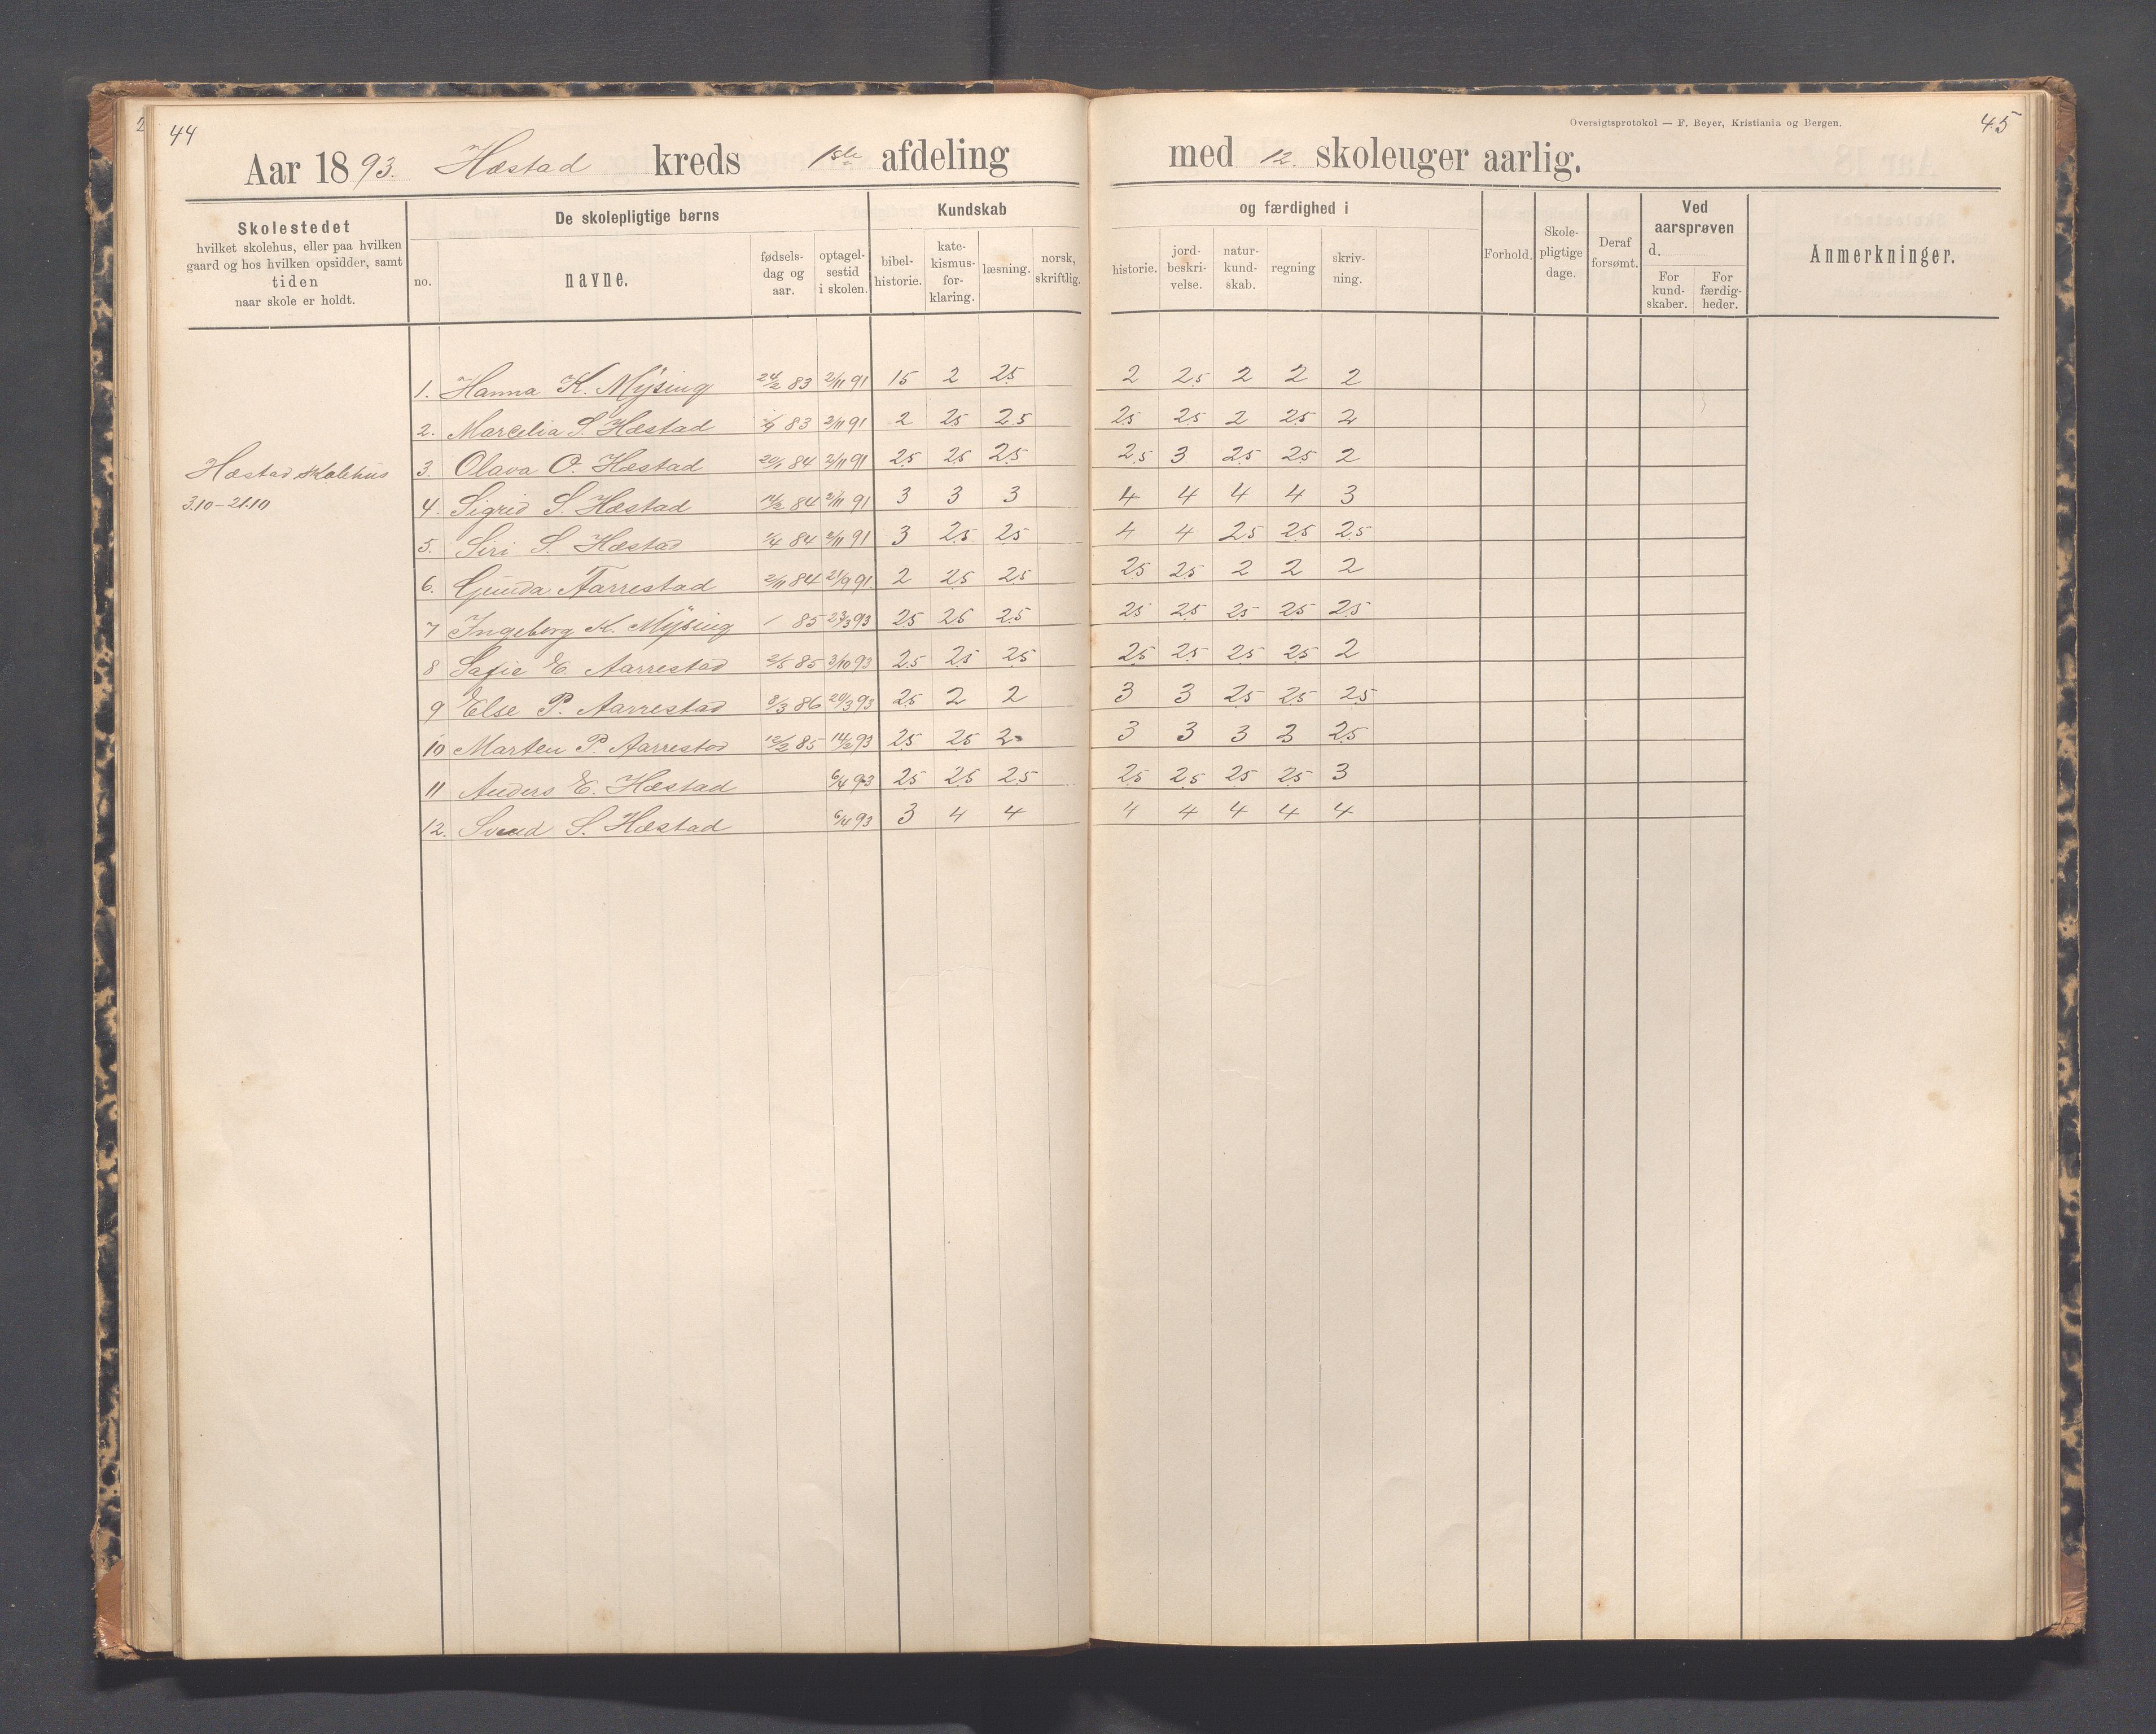 44
Aar 1893. Hæstad kreds 1ste afdeling
Oversigtsprotokol — F. Beyer, Kristiania og Bergen.
45
med 12. skoleuger aarlig.
Skolestedet
hvilket skolehus, eller paa hvilken
gaard og hos hvilken opsidder, samt
tiden
naar skole er holdt.
De skolepligtige børns
no.
navne.
fødsels-
dag og
aar.
optagel-
sestid
i skolen.
Kundskab
bibel-
historie.
kate-
kismus-
for-
klaring.
læsning.
norsk,
skriftlig.
og færdighed i
historie.
jord-
beskri-
velse.
natur-
kund-
skab.
regning
skriv-
ning.
Forhold.
Skole-
pligtige
dage.
Deraf
forsømt.
Ved
aarsprøven
d.
For
kund-
skaber.
For
færdig-
heder.
Anmerkninger.
Hæstad skolehus
3.10-21.10
1. Hanna K. Mÿsing 24/2 83 2/11 91 15 2 25 2 25 2 2 2
2. Marcelia S. Hæstad 83 2/11 91 2 25 25 25 25 2 25 2
3. Olava O. Hæstad 20/1 84 2/11 91 25 25 25 25 3 25 25 2
4. Sigrid S. Hæstad 14/2 84 2/11 91 3 3 3 4 4 4 4 3
5. Siri S. Hæstad /4 84 2/11 91 3 25 25 4 4 25 25 25
6. Gunda Aarrestad 2/11 84 21/9 91. 2 25 25 25 25 2 2 2
7 Ingeborg K. Mÿsing / 85 23/3 93 25 25 25 25 25 25 25 25
8 Safie E. Aarrestad 2/5 85 3/10 93 25 25 25 25 25 25 25 2
9 Else P. Aarrestad 8/3 86 20/3 93 25 2 2 3 3 25 25 25
10 Marten P. Aarrestad 12/2 85 14/2 93 25 25 2 3 3 3 3 25
11 Anders E. Hæstad 6/4 93 25 25 25 25 25 25 25 3
12. Svend S. Hæstad 6/4 93 3 4 4 4 4 4 4 4